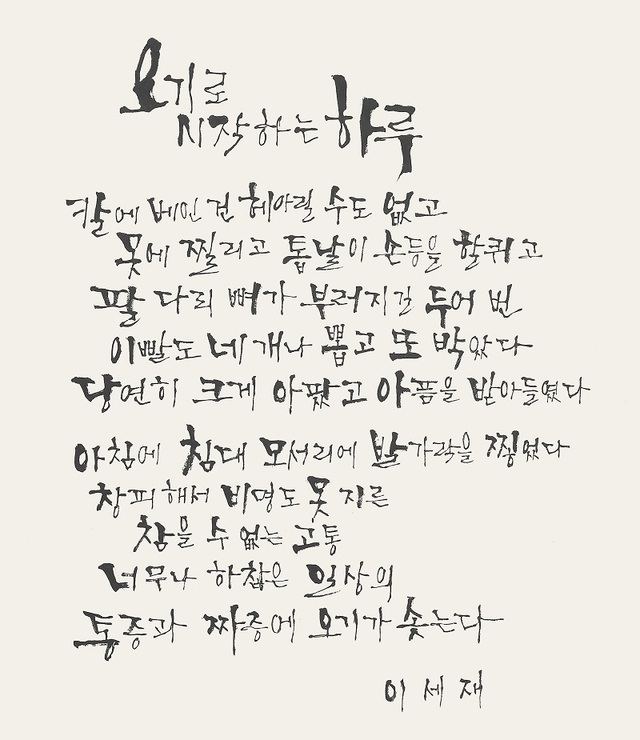 오기로
시작하는 하루
칼에 베인 건 헤아릴 수도 없고
못에 찔리고 톱날이 손등을 할퀴고
팔 다리 뼈가 부러지길 두어 번
이빨도 네 개나 뽑고 또 박았다
당연히 크게 아팠고 아픔을 받아들였다
아침에 침대 모서리에 발가락을 찧었다
창피해서 비명도 못 지른
참을 수 없는 고통
너무나 하찮은 일상의
통증과 짜증에 오기가 솟는다
이세재